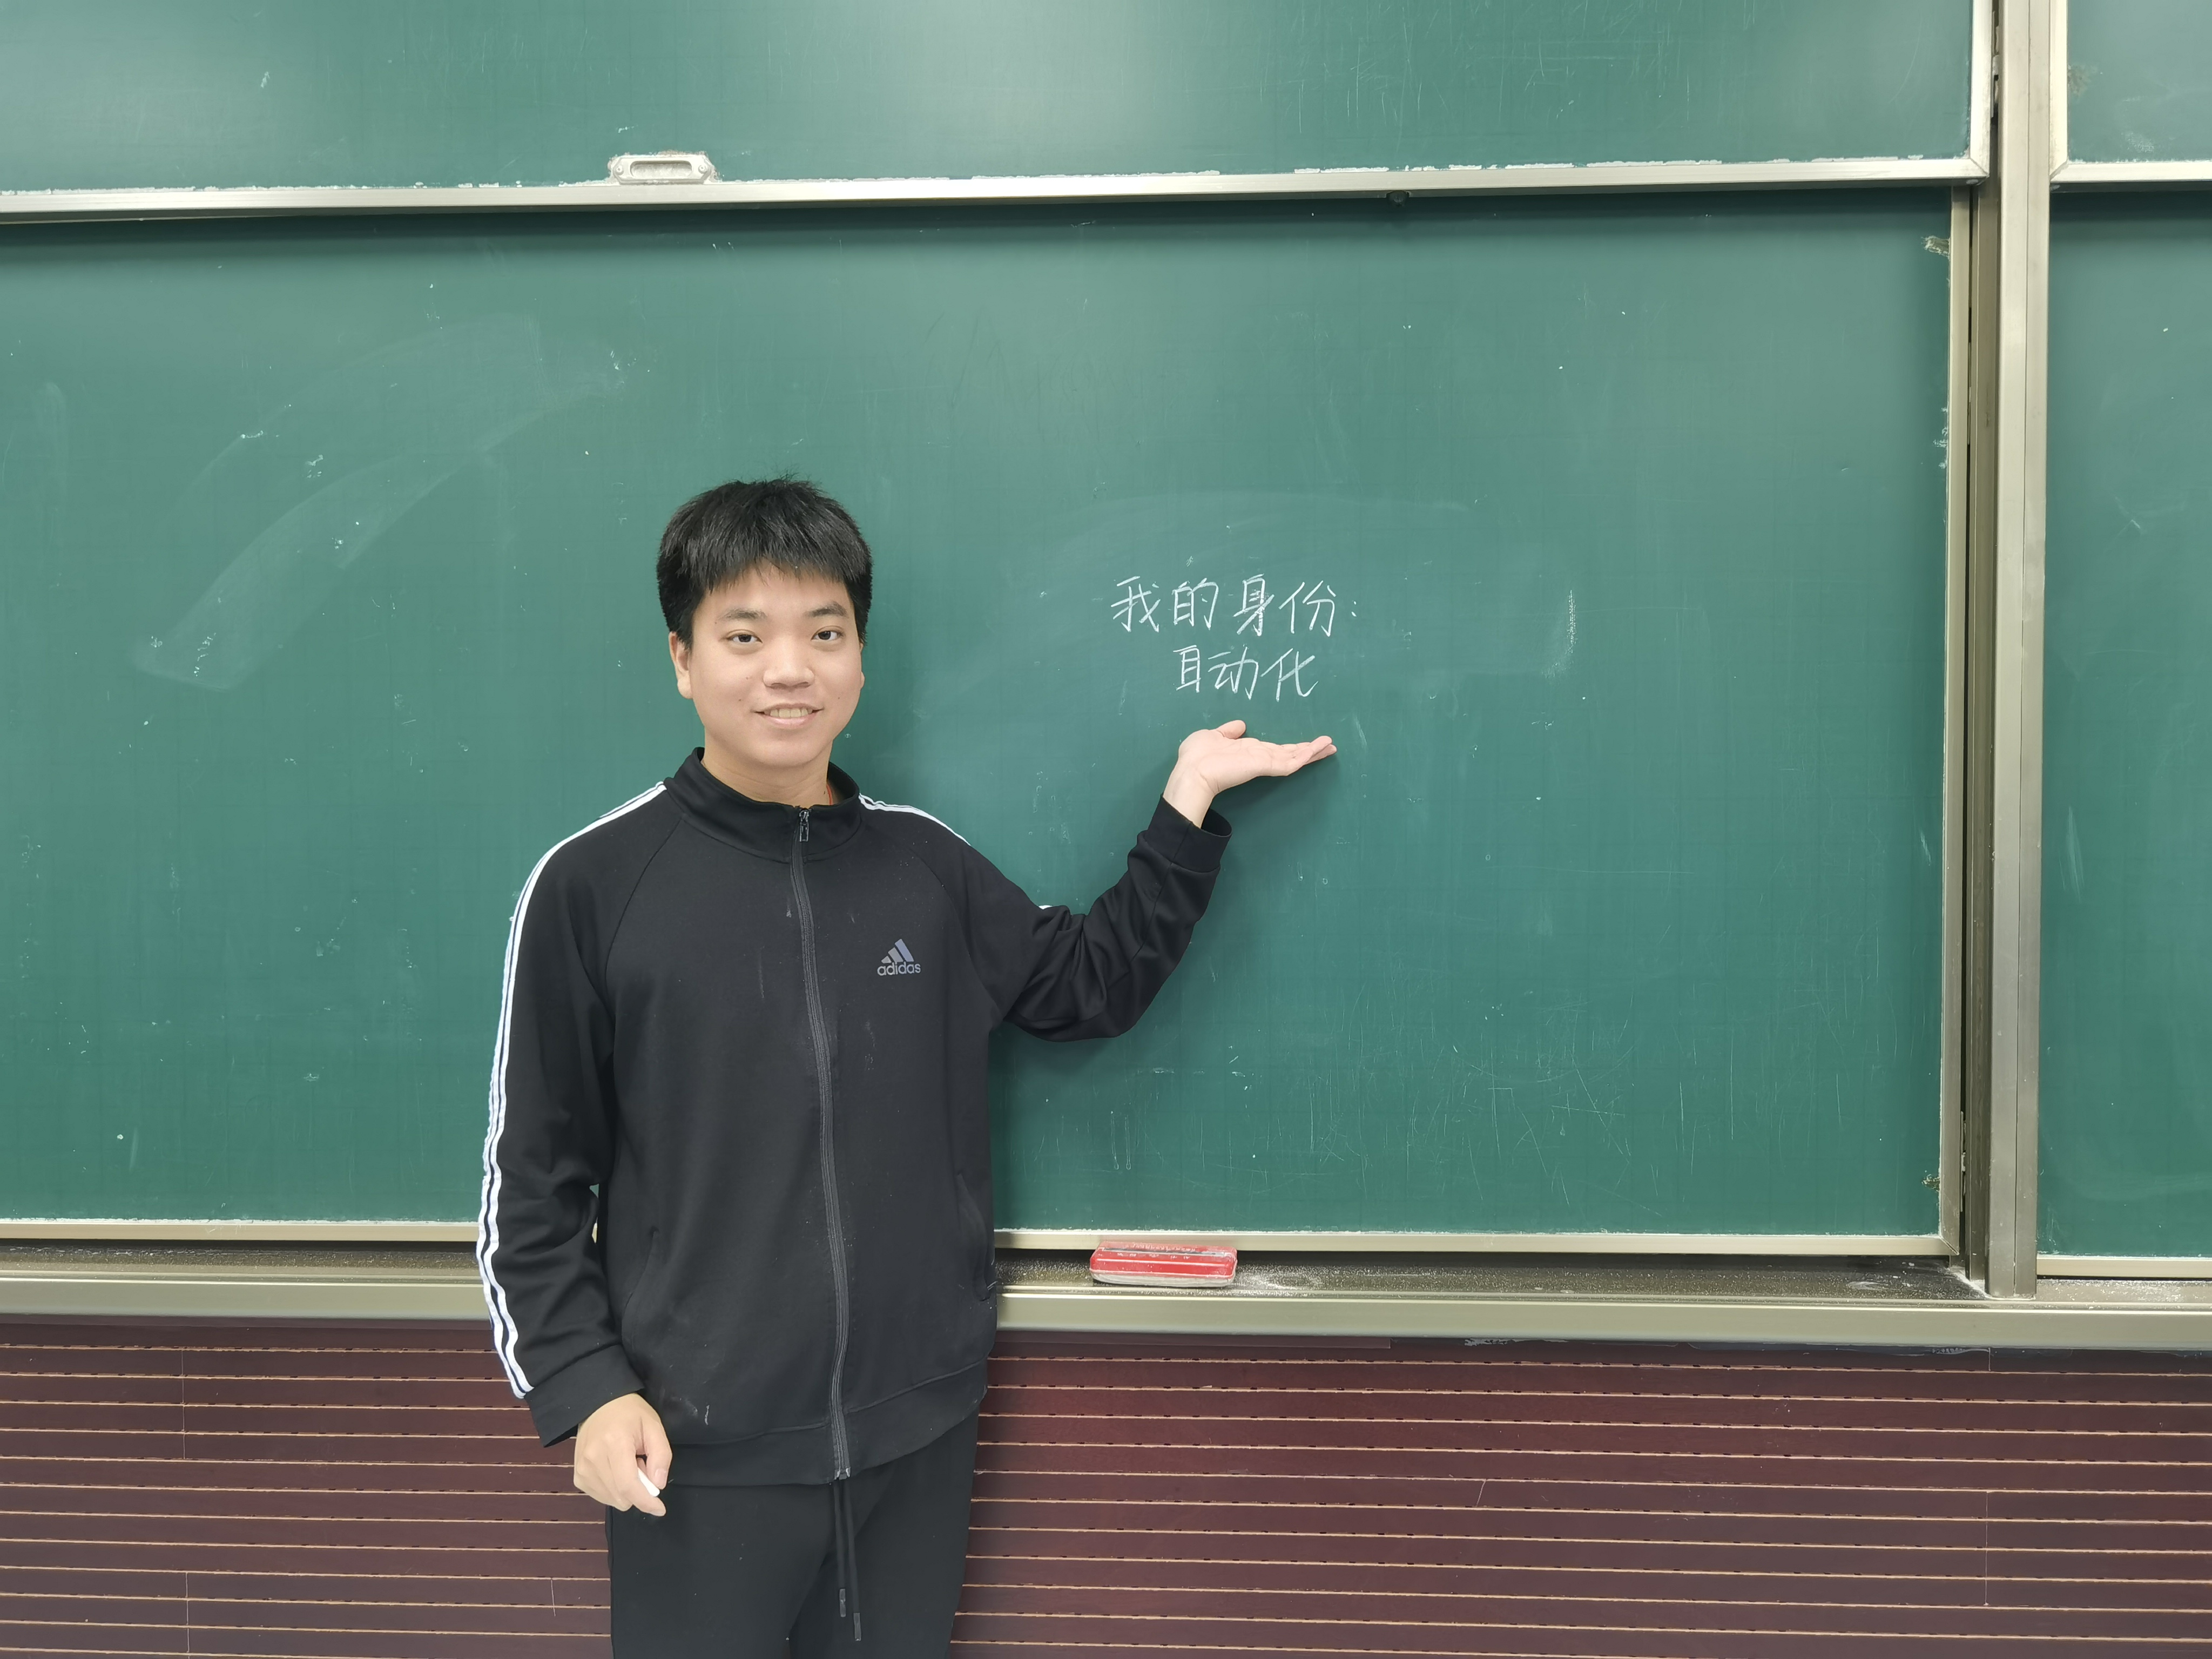 我的身份:
自动化
adidas